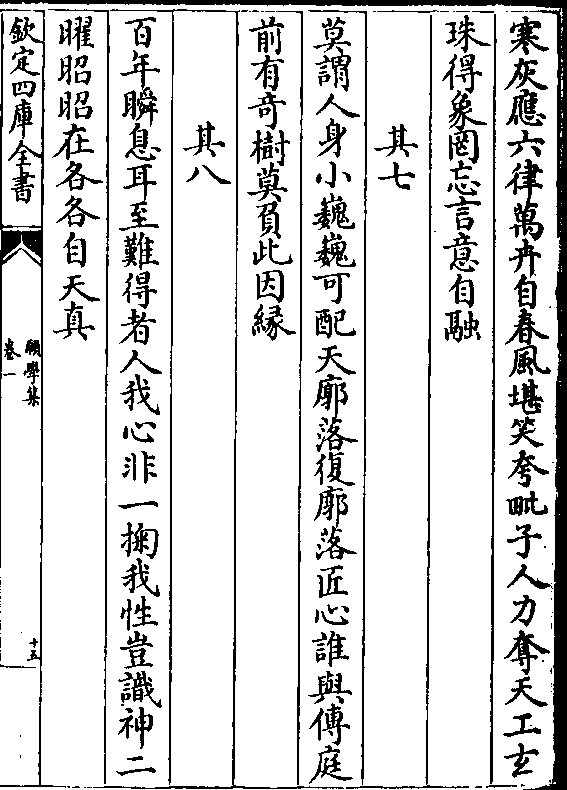 寒灰應六律萬卉自春風堪笑夸毗子人力奪天工玄
珠得象罔忘言意自融
其七
莫謂人身小巍巍可配天廓落復廓落匠心誰與傳庭
前有奇樹莫負此因縁
其八
百年瞬息耳至難得者人我心非一掬我性豈識神二
曜昭昭在各各自天真
欽定四庫全書
願學集
卷一
十五